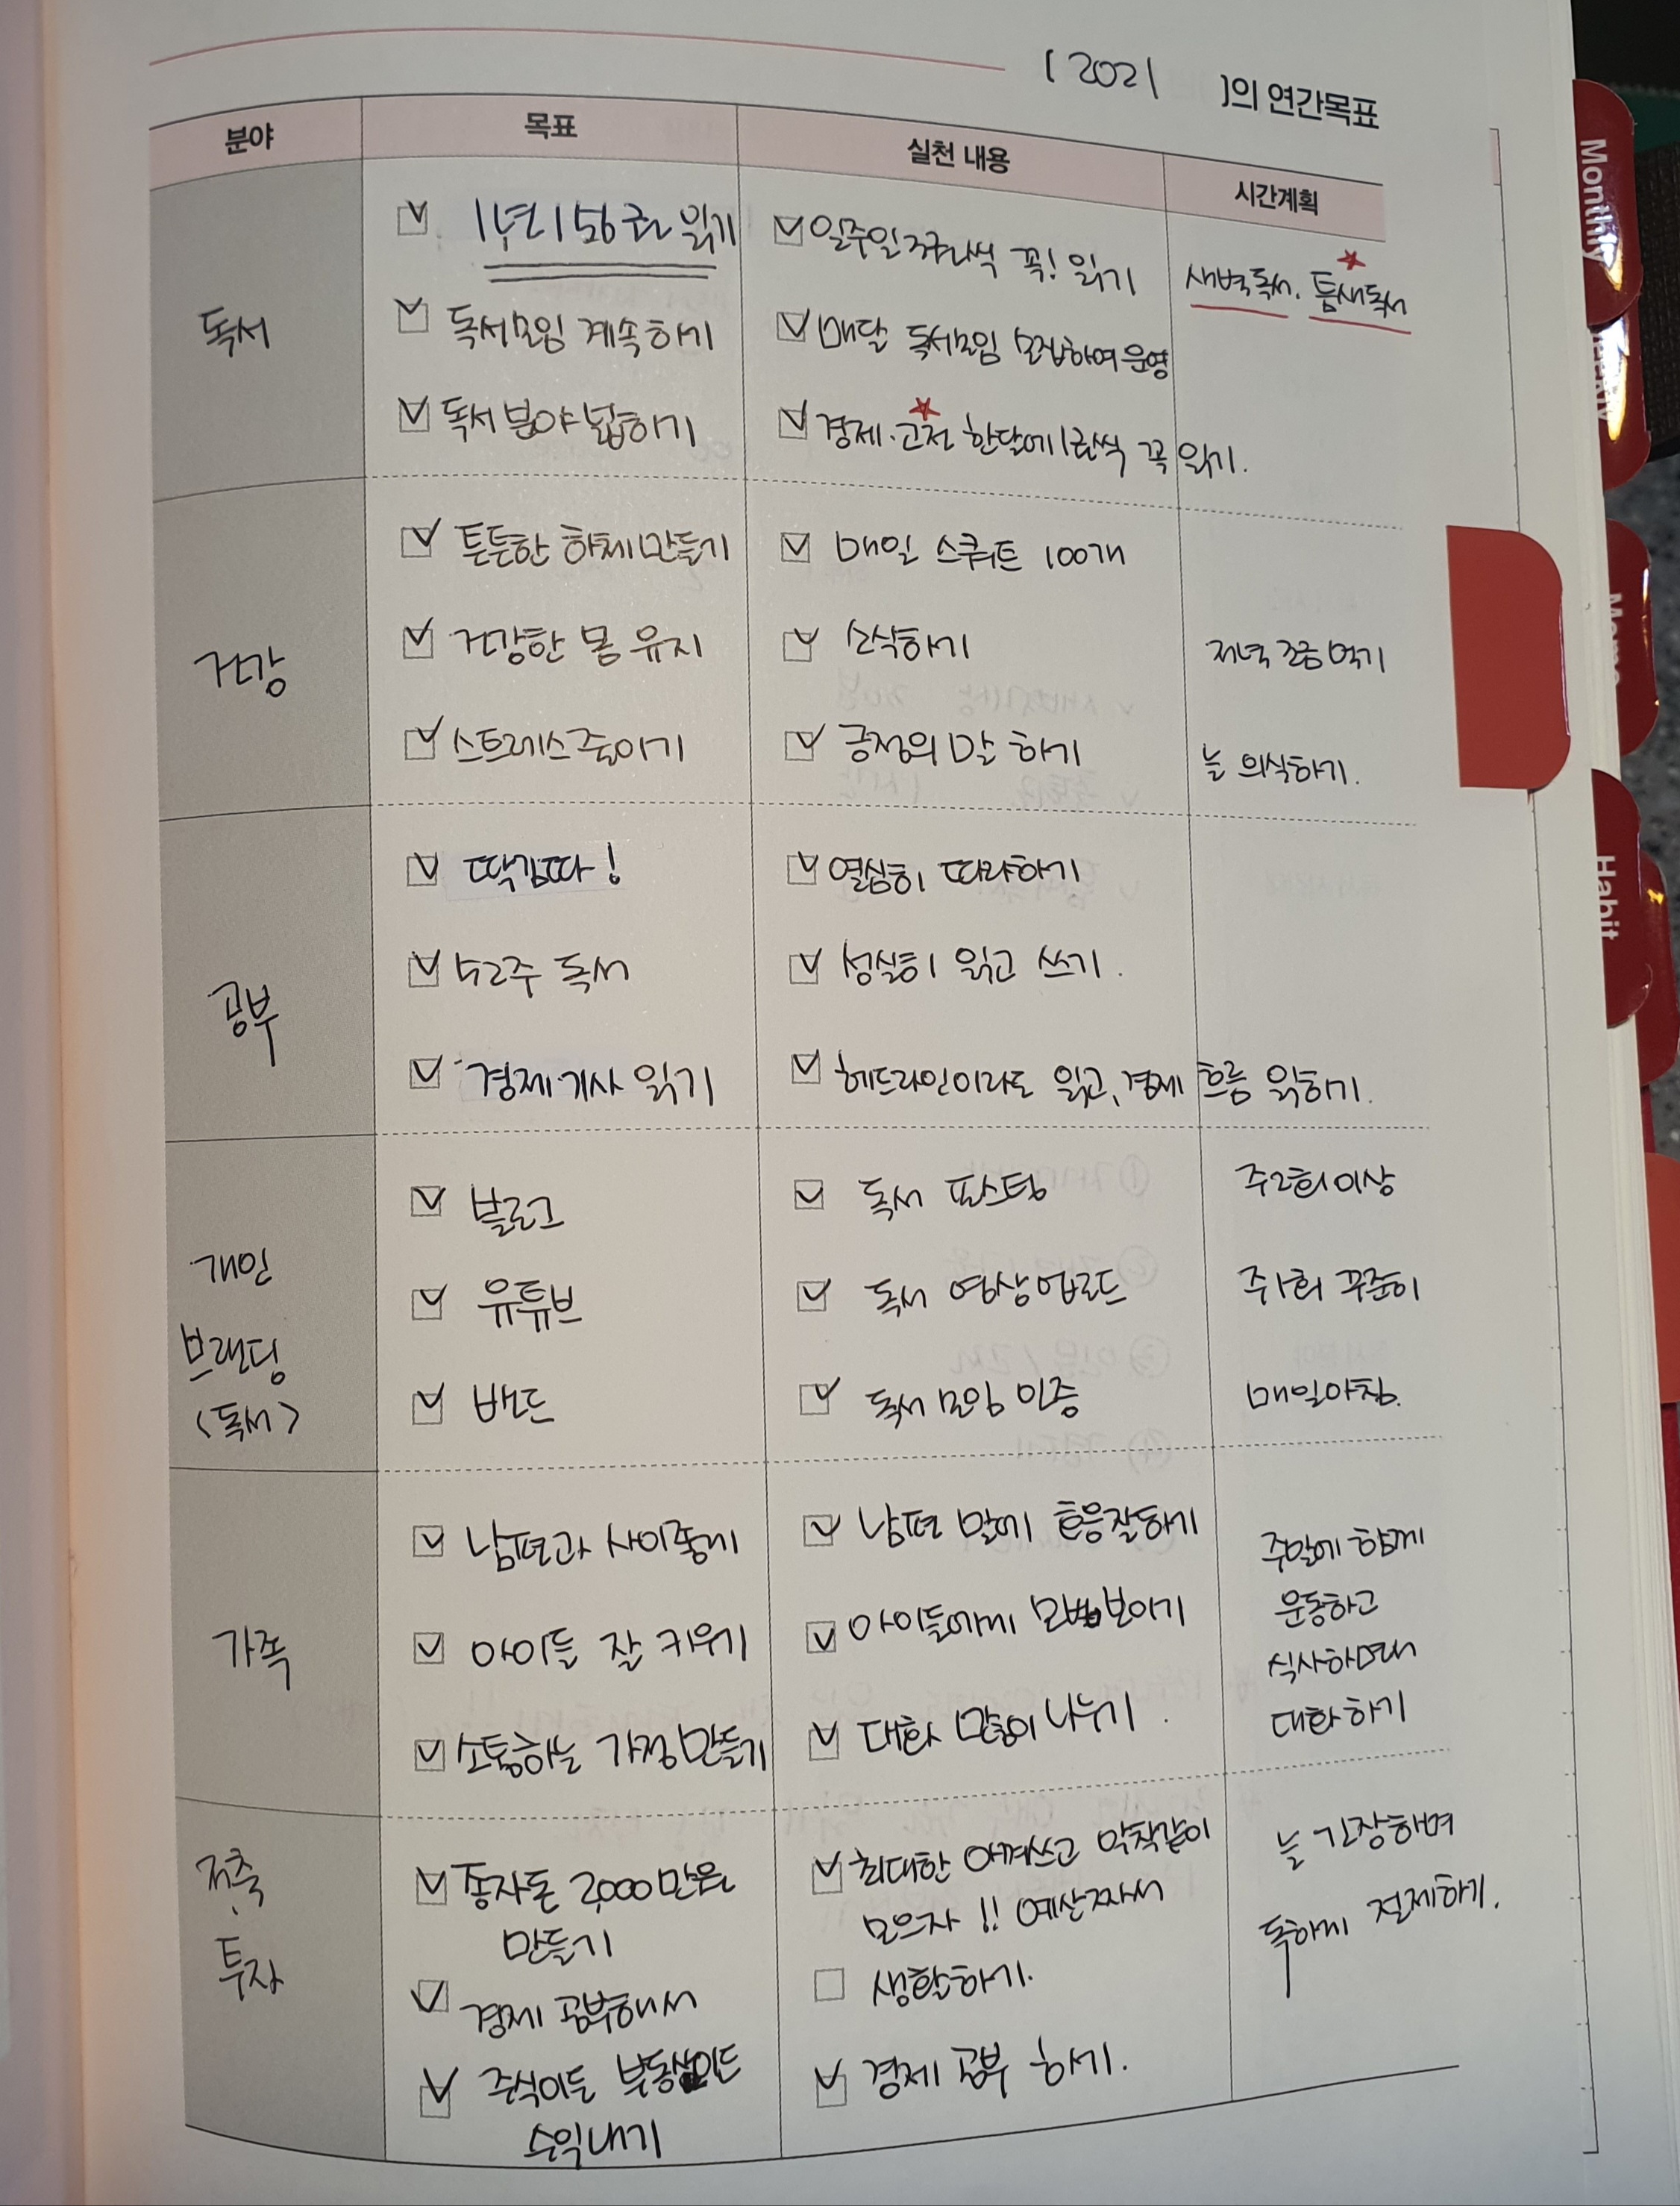 [ 2021 ]의 연간목표
분야 목표 실천 내용 시간계획
독서
1년 156권 읽기 일주일 3권씩 꼭! 읽기 새벽독서. 틈새독서
독서모임 계속하기 매달 독서모임 모집하여 운영
독서 분야 넓히기 경제·고전 한달에 1권씩 꼭 읽기.
건강
튼튼한 하체 만들기 매일 스쿼트 100개
건강한 몸 유지 소식하기 저녁 조금 먹기
스트레스 줄이기 긍정의 말 하기 늘 의식하기.
공부
딱김따! 열심히 따라하기
52주 독서 성실히 읽고 쓰기.
경제·기사 읽기 헤드라인이라도 읽고, 경제 흐름 읽하기.
개인
브랜딩
<독서>
블로그 독서 포스팅 주2회이상
유튜브 독서 영상업로드 주1회 꾸준히
밴드 독서모임 인증 매일아침.
가족
남편과 사이좋게 남편 말에 호응잘하기 주말에 함께
운동하고
아이들 잘 키우기 아이들에게 모범보이기 식사하며
소통하는 가정만들기 대화 많이 나누기. 대화하기
저축
·
투자
종자돈 2,000만원 최대한 아껴쓰고 악착같이 늘 긴장하며
만들기 모으자!! 예산짜서 독하게 절제하기.
경제 공부해서 생활하기.
주식이든 부동산이든 경제 공부 하기.
수익내기
Monthly
Weekly
Memo
Habit